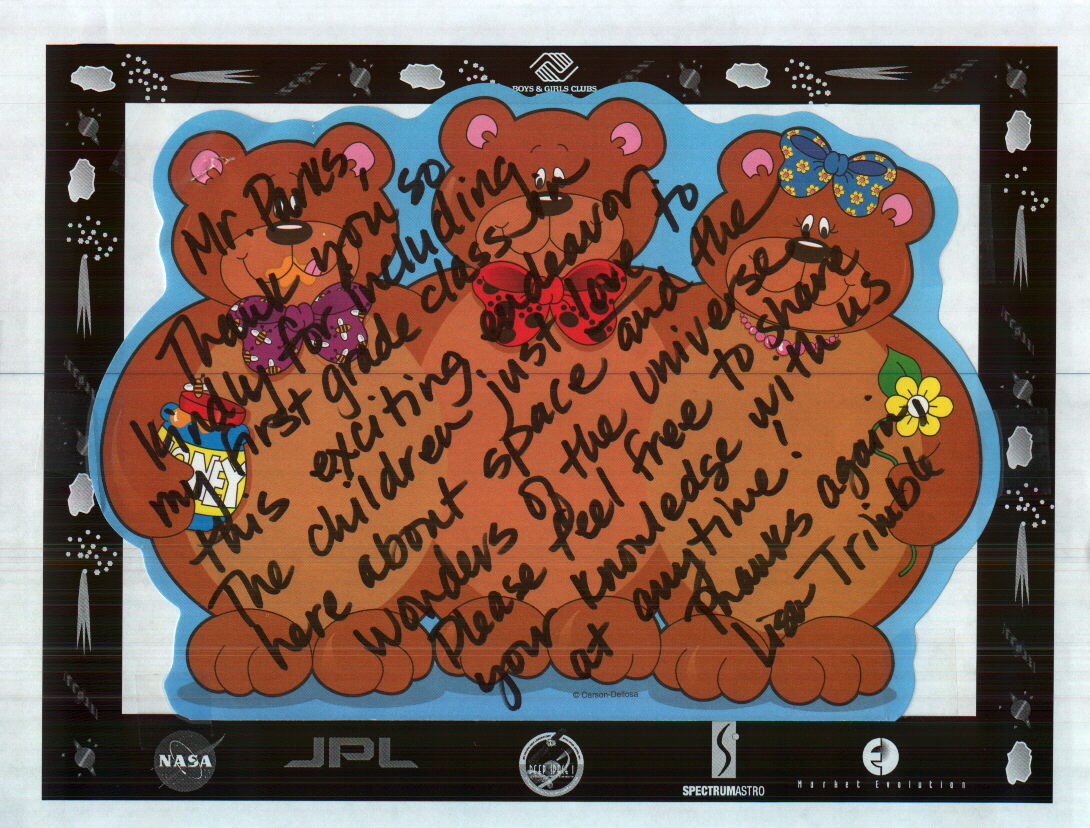 BOYS & GIRLS CLUBS
Mr. Parks,
Thank you so
kindly for including
my first grade class in
this exciting endeavor.
The children just love to
hear about space and the
wonders of the universe.
Please feel free to share
your knowledge with us
at anytime!
Thanks again.
Lisa Trimble
HONEY
© Carson-Dellosa
NASA
JPL
DEEP SPACE 1
SPECTRUMASTRO
Market Evolution